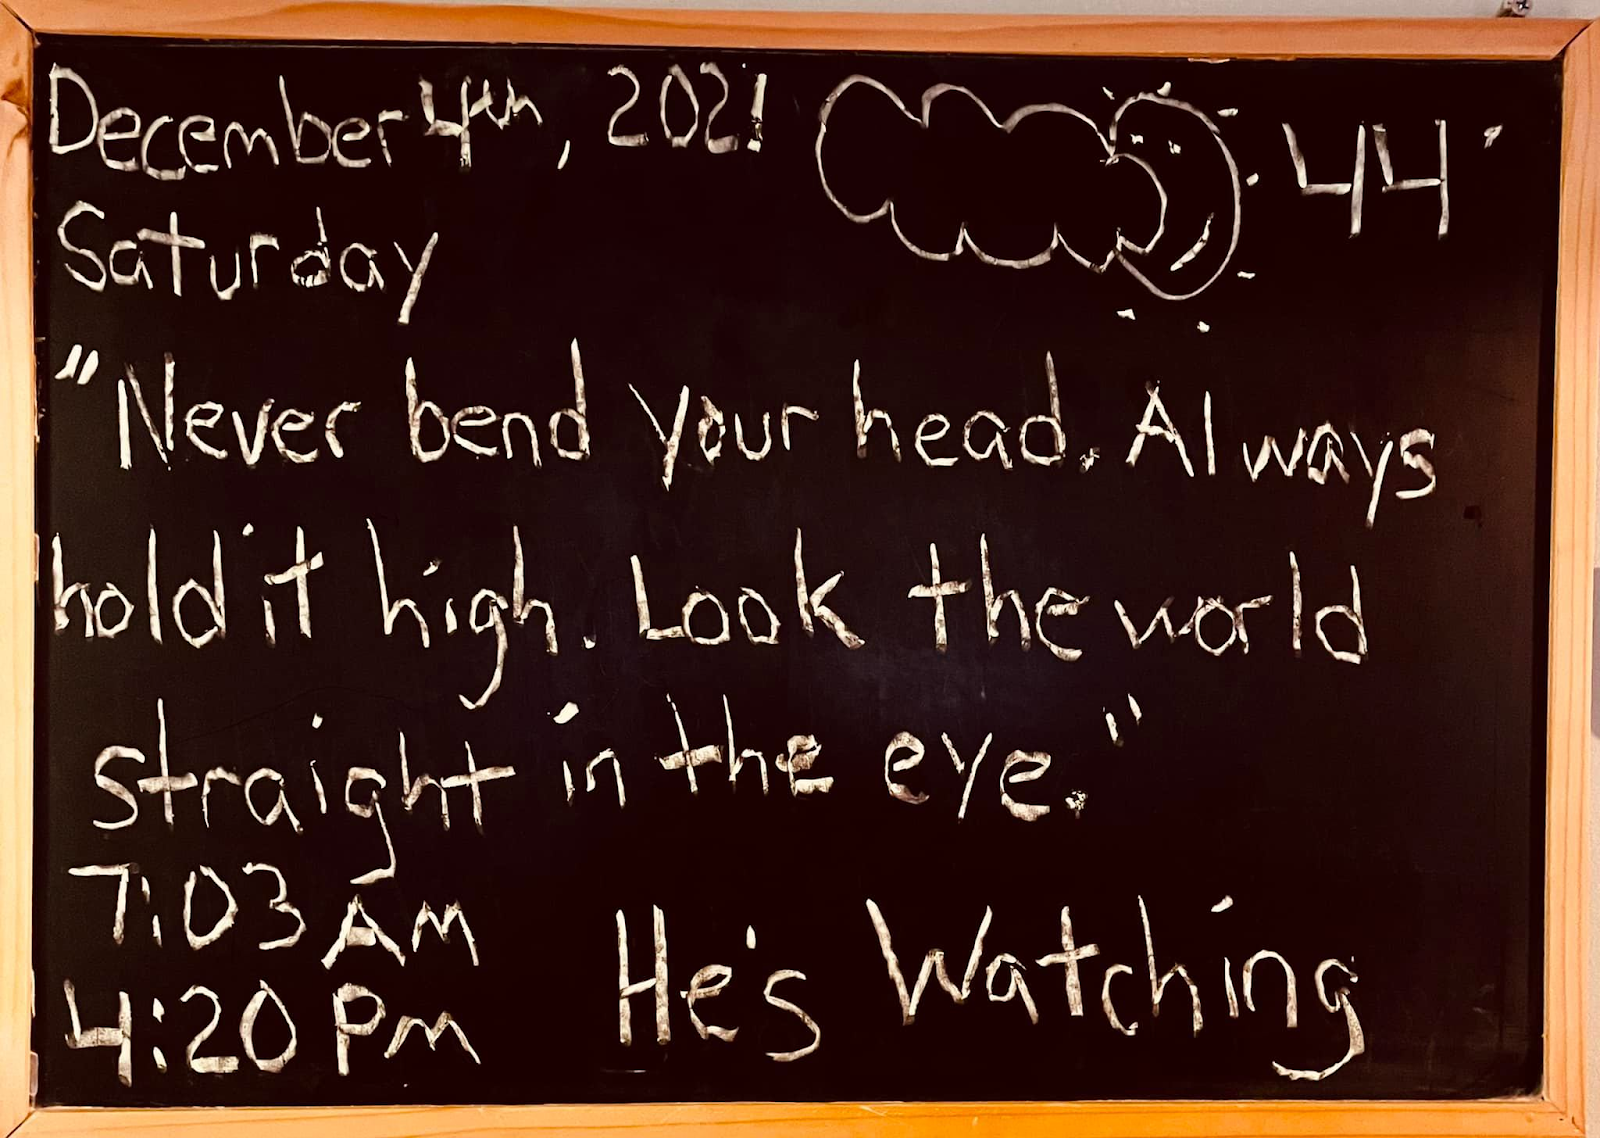 December 4th, 2021 44°
Saturday
"Never bend your head. Always
hold it high. Look the world
straight in the eye."
7:03 AM
4:20 PM He's Watching